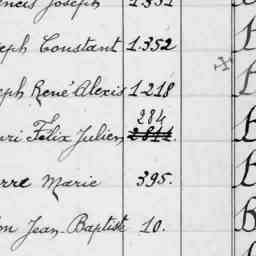 ncis Joseph 1351
eph Constant 1.352
eph René Alexis 1.218
284
uri Félix Julien
rre Marie 395.
on Jean-Baptiste 10.